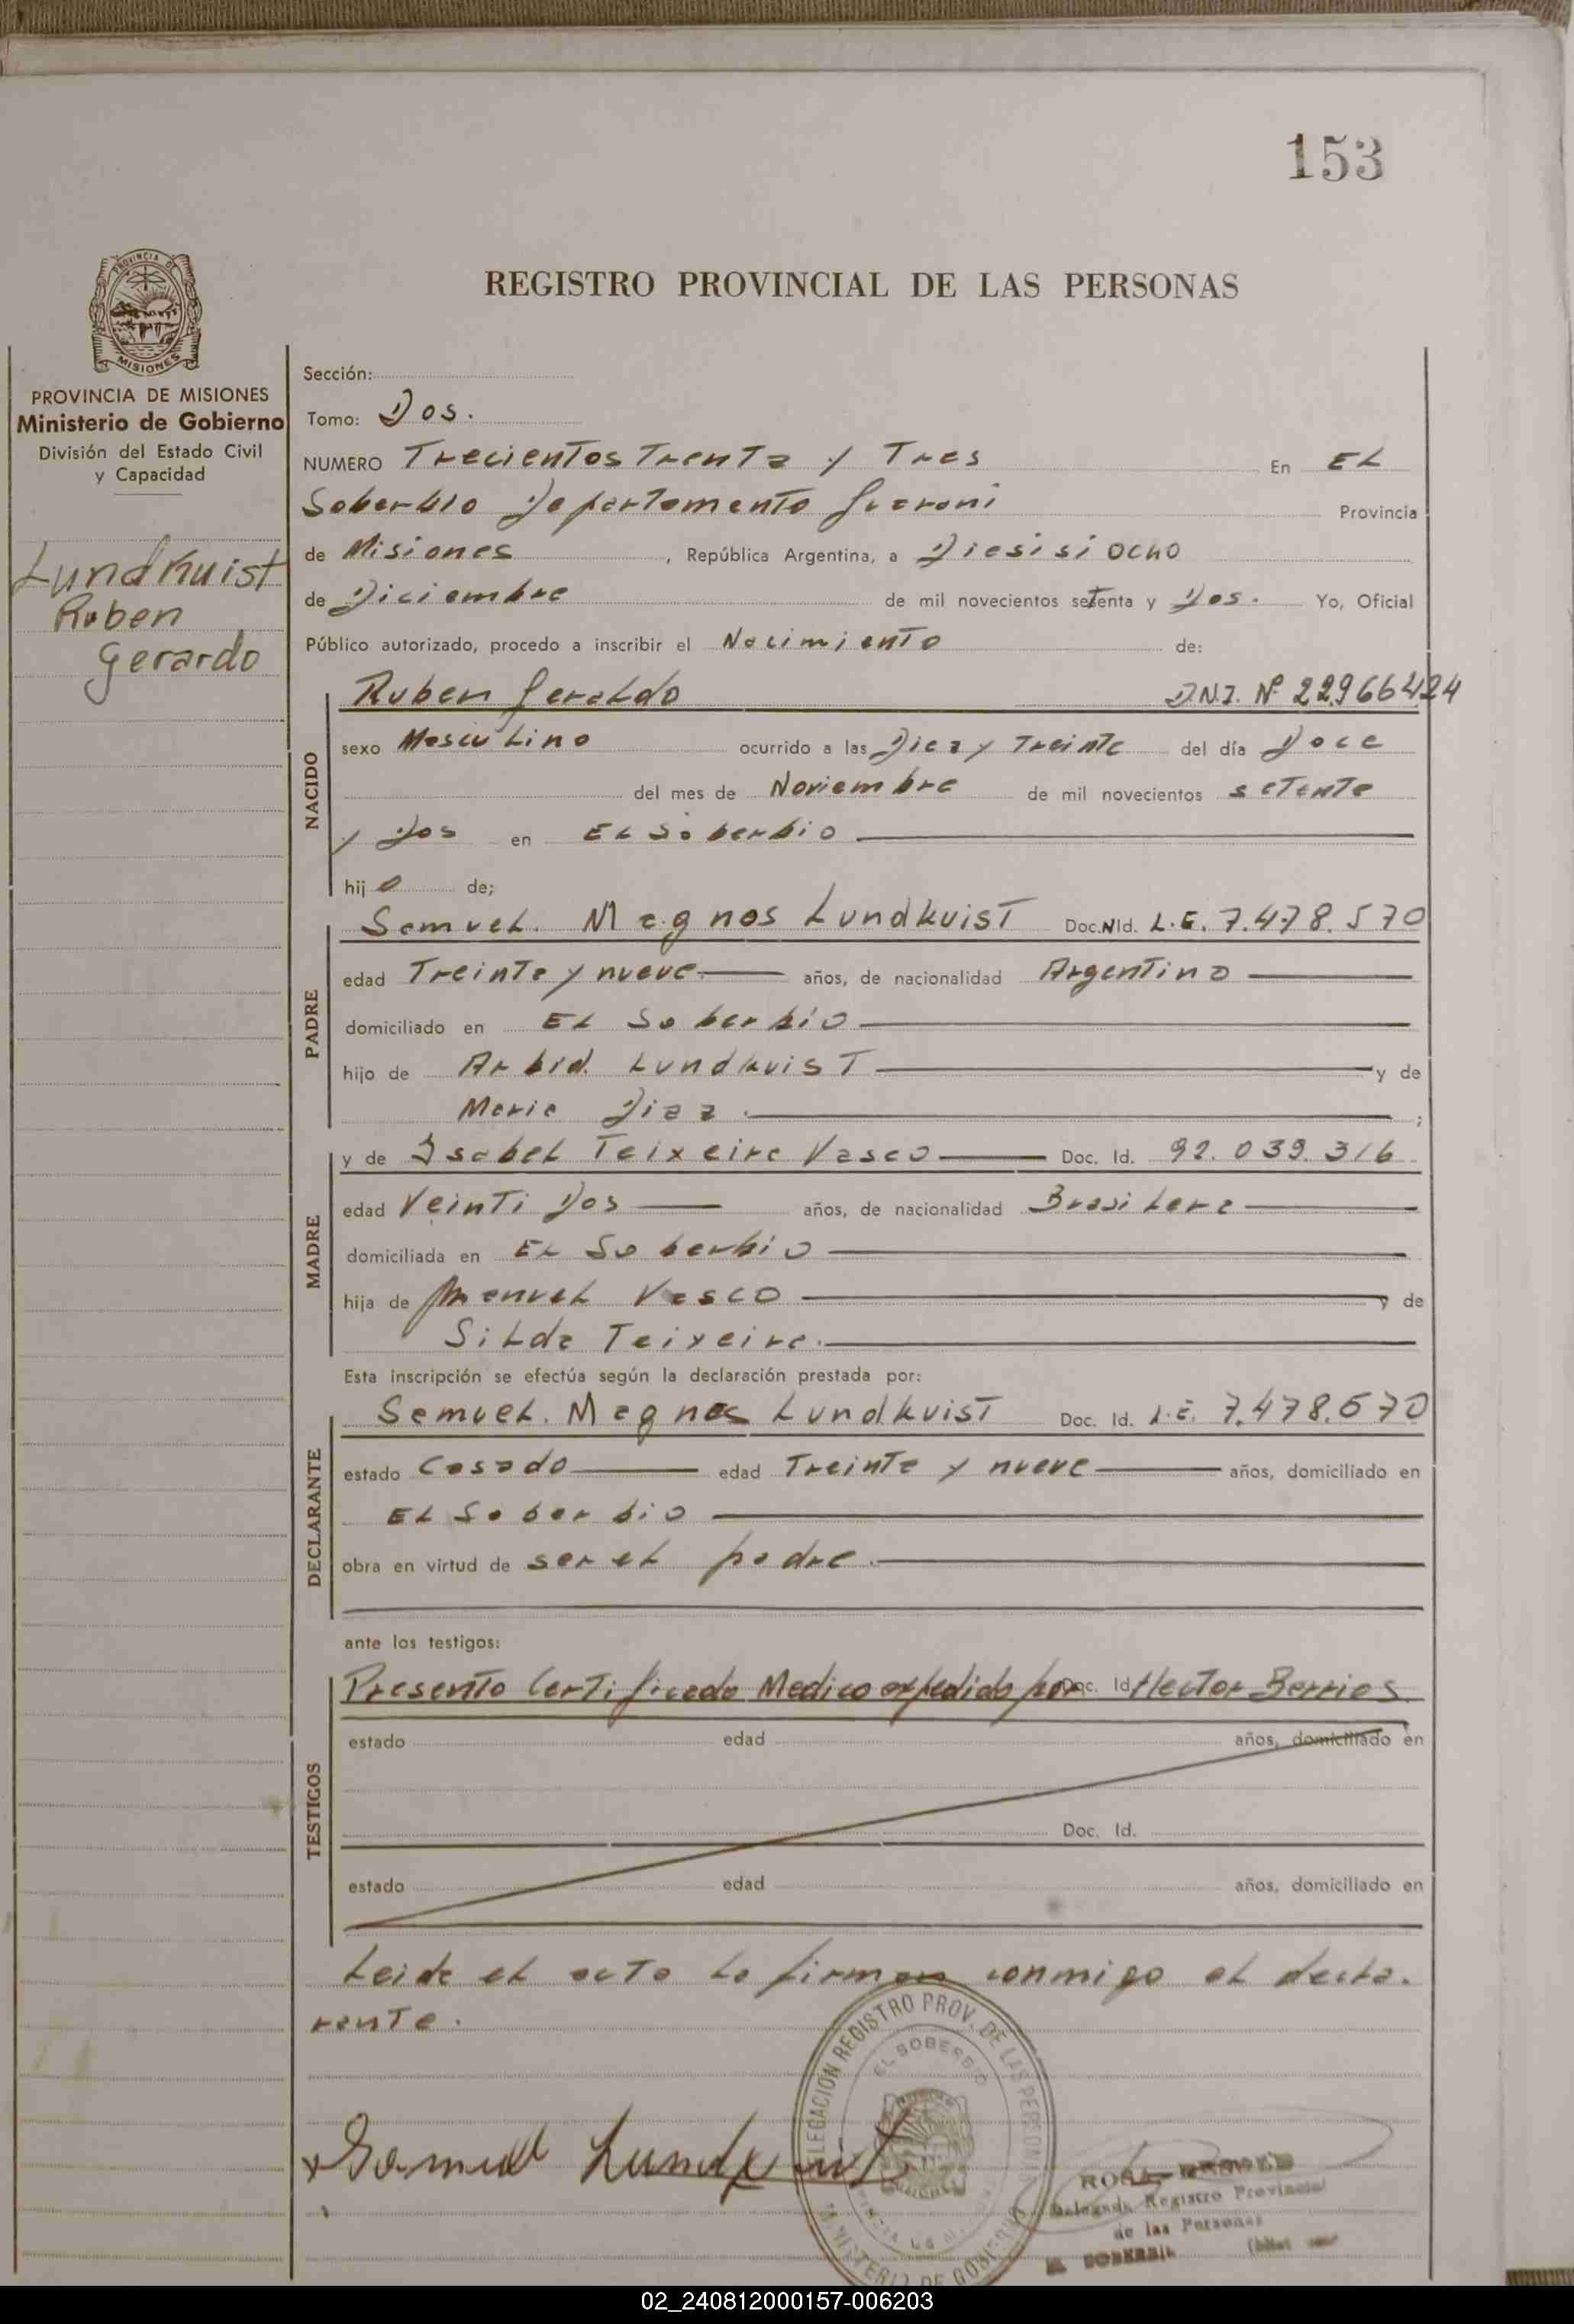 153
PROVINCIA DE
MISIONES
REGISTRO PROVINCIAL DE LAS PERSONAS
PROVINCIA DE MISIONES
Ministerio de Gobierno
División del Estado Civil
y Capacidad
Lundkuist
Ruben
Gerardo
Sección:
Tomo: Dos.
NUMERO Trecientos Trenta y Tres En EL
Soberbio Departamento Guarani Provincia
de Misiones, República Argentina, a Diesisiocho
de Diciembre de mil novecientos setenta y Dos. Yo, Oficial
Público autorizado, procedo a inscribir el Nacimiento de:
NACIDO
Ruben Geraldo D.N.I. Nº 22966424
sexo Masculino ocurrido a las Diez y Treinta del día Doce
del mes de Noviembre de mil novecientos setenta
y Dos en El Soberbio
hijo de;
PADRE
Samuel. Magnos Lundkuist Doc.NId. L.E. 7.478.570
edad Treinta y nueve años, de nacionalidad Argentina
domiciliado en El Soberbio
hijo de Arbid. Lundkuist y de
Maria Diaz.;
MADRE
y de Isabel Teixeira Vasco Doc. Id. 92.039.316
edad Veinti Dos años, de nacionalidad Brasilera
domiciliada en El Soberbio
hija de Manuel Vasco y de
Silda Teixeira.
Esta inscripción se efectúa según la declaración prestada por:
DECLARANTE
Samuel. Magnos Lundkuist Doc. Id. L.E. 7.478.570
estado Casado edad Treinta y nueve años, domiciliado en
El Soberbio
obra en virtud de ser el padre.
ante los testigos:
TESTIGOS
Presento Certificado Medico expedido por Doc. Id. Hector Berrios.
estado edad años, domiciliado en
Doc. Id.
estado edad años, domiciliado en
Leida el acta la firman conmigo el decla.
rante.
Samuel Lundkuist
DELEGACION REGISTRO PROV. DE LAS PERSONAS
EL SOBERBIO
MINISTERIO DE GOBIERNO
ROSA
Delegada Registro Provincial
de las Personas
EL SOBERBIO
02_240812000157-006203